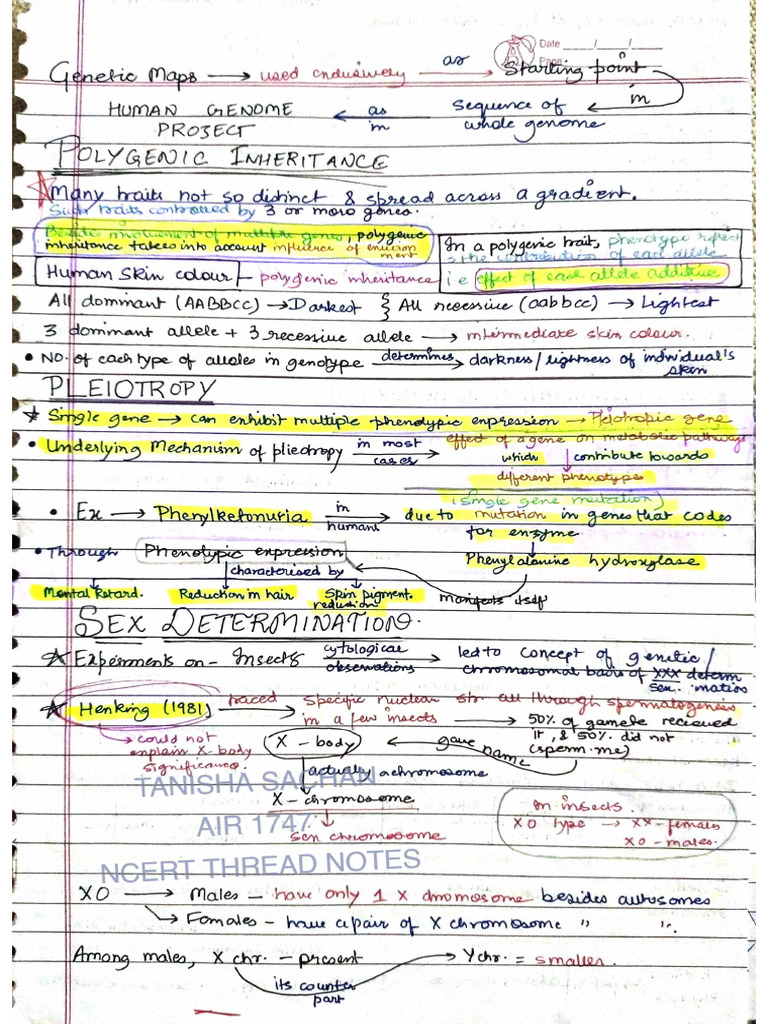 Date
Page
Genetic Maps → used exclusively as → Starting point
in
HUMAN GENOME ← as in sequence of
PROJECT whole genome
POLYGENIC INHERITANCE
Many traits not so distinct & spread across a gradient.
Such traits controlled by 3 or more genes.
Beside involvement of multiple genes, polygenic
inheritance takes into account influence of environ
ment
In a polygenic trait, phenotype reflect
s the contribution of each allele
i.e effect of each allele additive
Human Skin colour - polygenic inheritance
All dominant (AABBCC) → Darkest } All recessive (aabbcc) → Lightest
3 dominant allele + 3 recessive allele → intermediate skin colour.
• No. of each type of alleles in genotype determines → darkness/lightness of individual's
skin
PLEIOTROPY
Single gene → can exhibit multiple phenotypic expression → Pleiotropic gene
• Underlying Mechanism of pliedtropy in most cases → effect of a gene on metabolic pathways
which ↓ contribute towards
different phenotypes
(single gene mutation)
• Ex → Phenylketonuria in humans → due to mutation in genes that codes
for enzyme
Phenylalanine hydroxylase
• Through Phenotypic expression
characterised by
manifests itself
Mental Retard. Reduction in hair Skin pigment.
reduction
SEX DETERMINATION.
Experiments on - Insects cytological observations → led to concept of genetic/
chromosomal basis of XXX determ
sex. ination
Henking (1981) traced → Specific nuclear str. all through spermatogenesis
in a few insects → 50% of gamete recieved
it, & 50% did not
(sperm.me)
could not
explain X-body
significance.
X - body ← gave name
↓ actually a chromosome
X - chromosome
↓
Sex chromosome
In insects
XO type → XX - females
XO - males.
TANISHA SACHAN
AIR 1747
NCERT THREAD NOTES
XO → Males - have only 1 X chromosome besides autosomes
→ Females - have a pair of X chromosome " ".
Among males, X chr. - present → Y chr. = smaller.
its counter
part